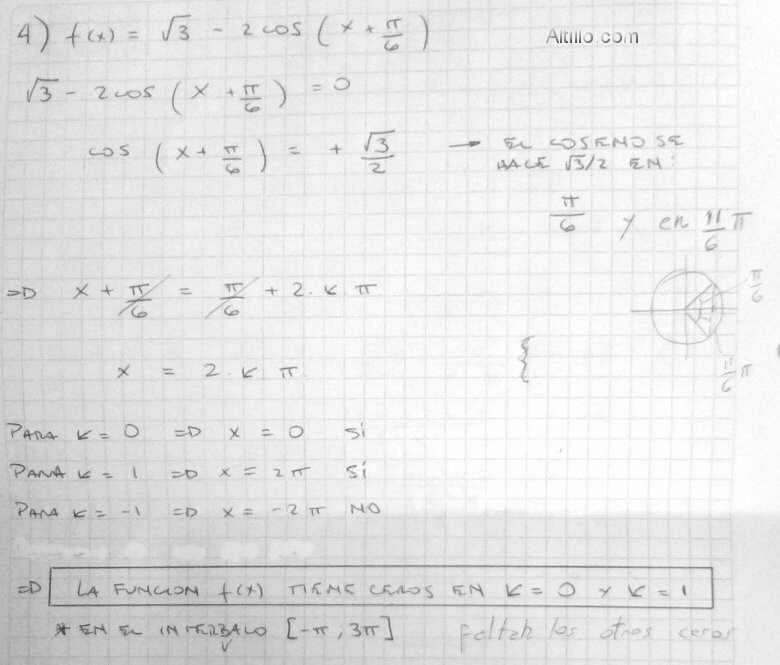 4) f(x) = √3 - 2 cos (x + π/6)
Altillo.com
√3 - 2 cos (x + π/6) = 0
cos (x + π/6) = + √3/2 → EL COSENO SE
HACE √3/2 EN:
π/6 y en 11/6 π
=D x + π/6 = π/6 + 2.K π
π/6
x = 2.K π {
11/6 π
PARA K = 0 =D x = 0 SÍ
PARA K = 1 =D x = 2π SÍ
PARA K = -1 =D x = -2π NO
=D LA FUNCION f(x) TIENE CEROS EN K = 0 Y K = 1
* EN EL INTERBALO [-π, 3π] faltan los otros ceros
V